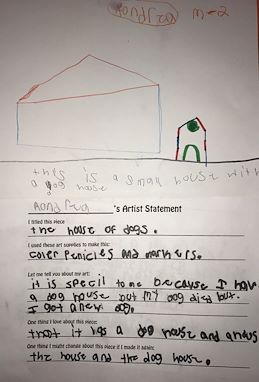 M-2
this is a small house with
a dog house
's Artist Statement
I titled this piece
the house of dogs.
I used these art supplies to make this:
coler penicles and markers.
Let me tell you about my art:
it is specil to me because I have
a dog house but my dog died but.
I got a new dog.
One thing I love about this piece:
that it has a dog house and
One thing I might change about this piece if I made it again:
the house and the dog house.